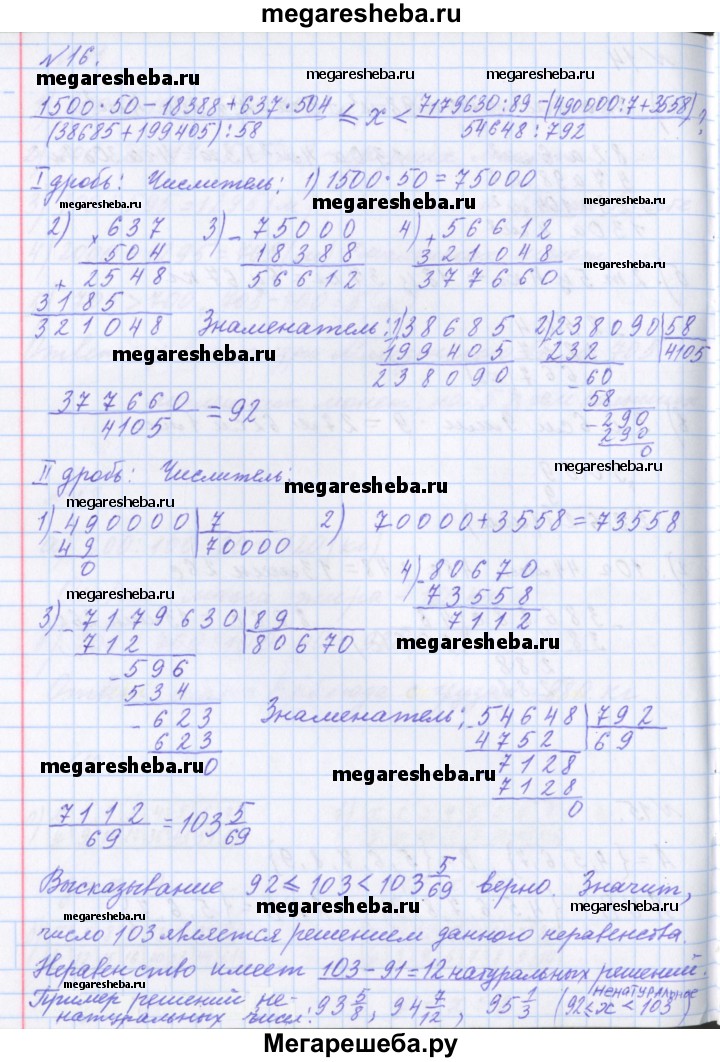 megaresheba.ru
№16.
megaresheba.ru
1500·50-18388+637·504 / (38685+199405):58 ≤ x < 7179630:89-(490000:7+3558) / 54648:792 ?
I дробь: Числитель: 1) 1500·50=75000
megaresheba.ru megaresheba.ru
2) × 637 3) - 75000 4) + 56612
504 18388 321048
+ 2548 56612 377660
3185
321048 Знаменатель: 1) 38685 2) 238090 | 58
megaresheba.ru 199405 232 4105
238090 - 60
377660 / 4105 = 92 58
- 290
290
0
II дробь: Числитель:
megaresheba.ru
megaresheba.ru
1) 490000 | 7 2) 70000+3558=73558
49 70000
0
megaresheba.ru 4) - 80670
73558
7112
3) - 7179630 | 89 megaresheba.ru
712 80670
- 596
534
- 623 Знаменатель: - 54648 | 792
623 4752 69
0 7128
megaresheba.ru megaresheba.ru
7128
0
7112 / 69 = 103 5/69
Высказывание 92 ≤ 103 < 103 5/69 верно. Значит,
megaresheba.ru megaresheba.ru megaresheba.ru
число 103 является решением данного неравенства.
Неравенство имеет 103-91=12 натуральных решений.
megaresheba.ru megaresheba.ru megaresheba.ru
Пример решений не-
натуральных чисел: 93 5/8, 94 7/12, 95 1/3 (92 ≤ x < 103) ненатуральное
Мегарешеба.ру